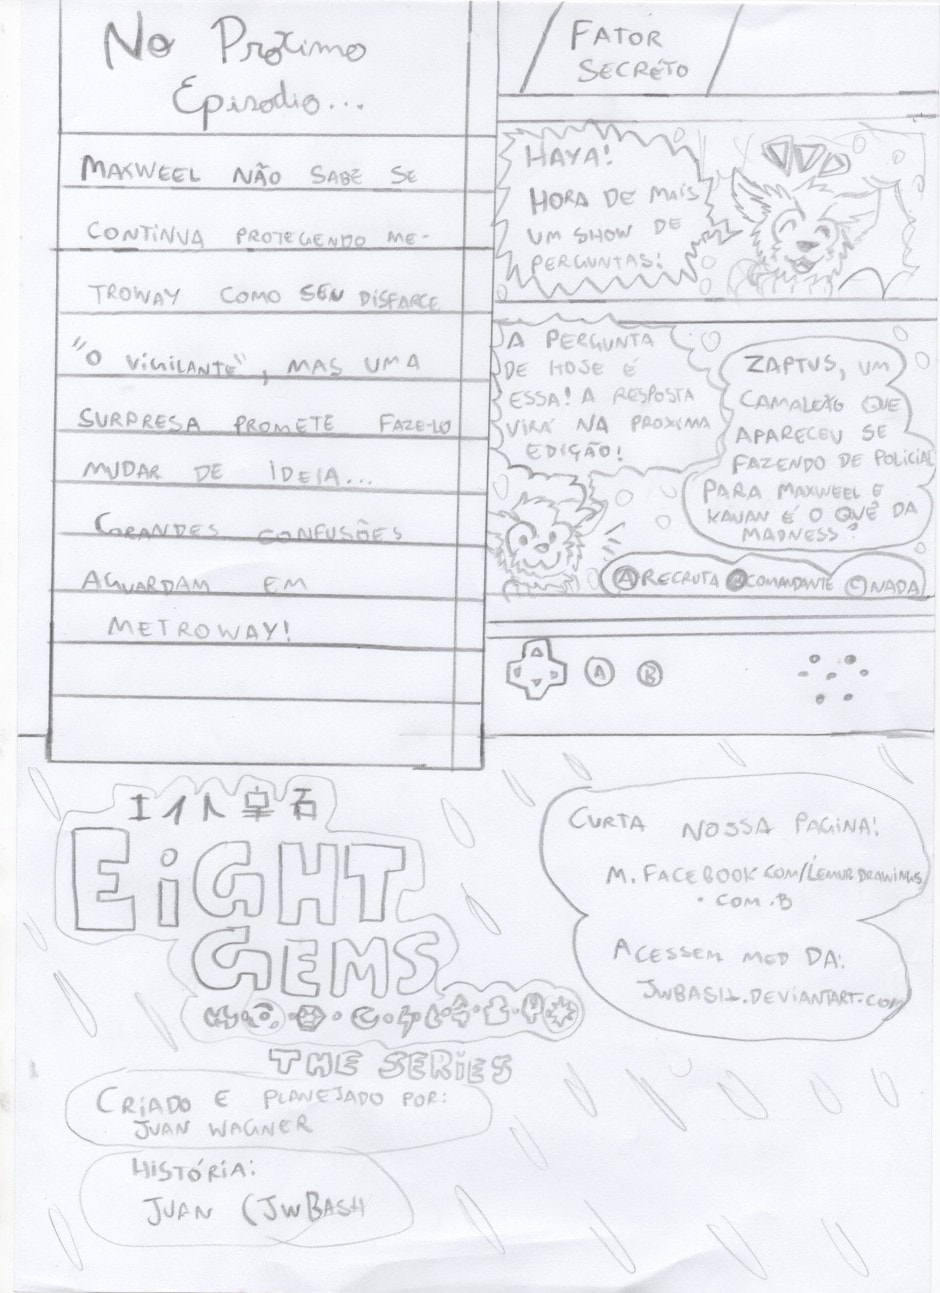 No Proximo
Episodio...
MAXWEEL NÃO SABE SE
CONTINVA PROTEGENDO ME-
TROWAY COMO SEU DISFARCE
"O ViGiLANTE", MAS UMA
SURPRESA PROMETE FAZE-LO
MUDAR DE IDEIA...
GRANDES CONFUSÕES
AGUARDAM EM
METROWAY!
FATOR
SECRETO
HAYA!
HORA DE MAIS
UM SHOW DE
PERGUNTAS!
A PERGUNTA
DE HOJE É
ESSA! A RESPOSTA
VIRÁ NA PROXIMA
EDIÇÃO!
ZAPTUS, UM
CAMALEÃO QUE
APARECEU SE
FAZENDO DE POLICIAL
PARA MAXWEEL E
KAUAN É O QUÊ DA
MADNESS?
A RECRUTA B COMANDANTE C NADA
A B
EiGHT
GEMS
THE SERiES
CRiADO E PLANEJADO POR:
JUAN WAGNER
HiSTÓRiA:
JUAN (JWBASH
CURTA NOSSA PAGINA!
M.FACEBOOK.COM/LEMURDRAWINGS
.COM.B
ACESSEM MEO DA:
JWBASH.DEViANTART.COM